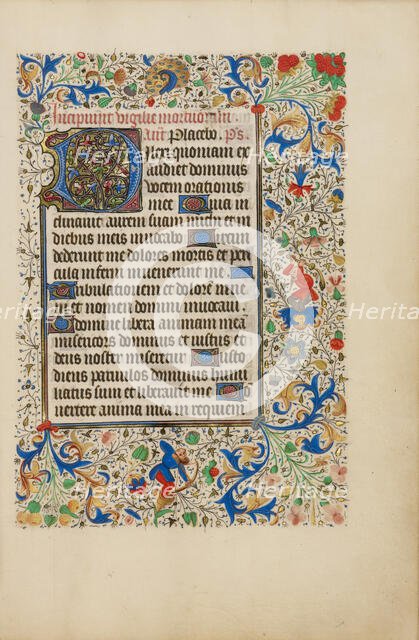 Incipiunt vigilie mortuorum
ant Placebo. Ps.
Dilexi quoniam ex
audiet dominus
vocem orationis
mee Quia in
clinauit aurem suam michi et in
diebus meis inuocabo Circum
dederunt me dolores mortis et peri
cula inferni inuenerunt me
Tribulationem et dolorē inue
ni et nomen domini inuocaui
O domine libera animam meā
misericors dominus et iustus et
deus noster miseretur Custo
diens paruulos dominus humi
liatus sum et liberauit me Con
uertere anima mea in requiem
Heritage